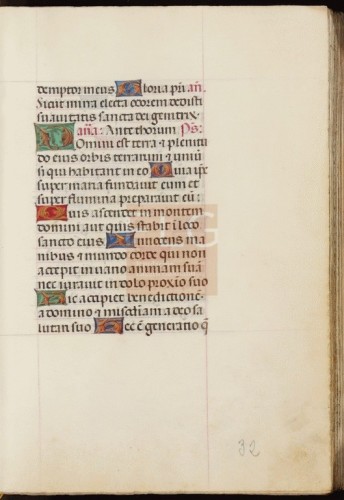 demptor meus Gloria pr̄i añ.
Sicut mirra electa odorem dedisti
suavitatis sancta dei genitrix.
añā: Ante thorum Ps̄:
Domini est terra & plenitu
do eius orbis terrarum & univ̄
si qui habitant in eo Quia ip̄e
super maria fundavit eum et
super flumina preparavit eū:
Quis ascendet in montem
domini aut quis stabit ī loco
sancto eius Innocens ma
nibus & mundo corde qui non
accepit in vano animam suā
nec iuravit in dolo proximo suo
Hic accipiet benedictionē
a domino & misc̄diam a deo sa
lutari suo Hec ē generatio q̄
32